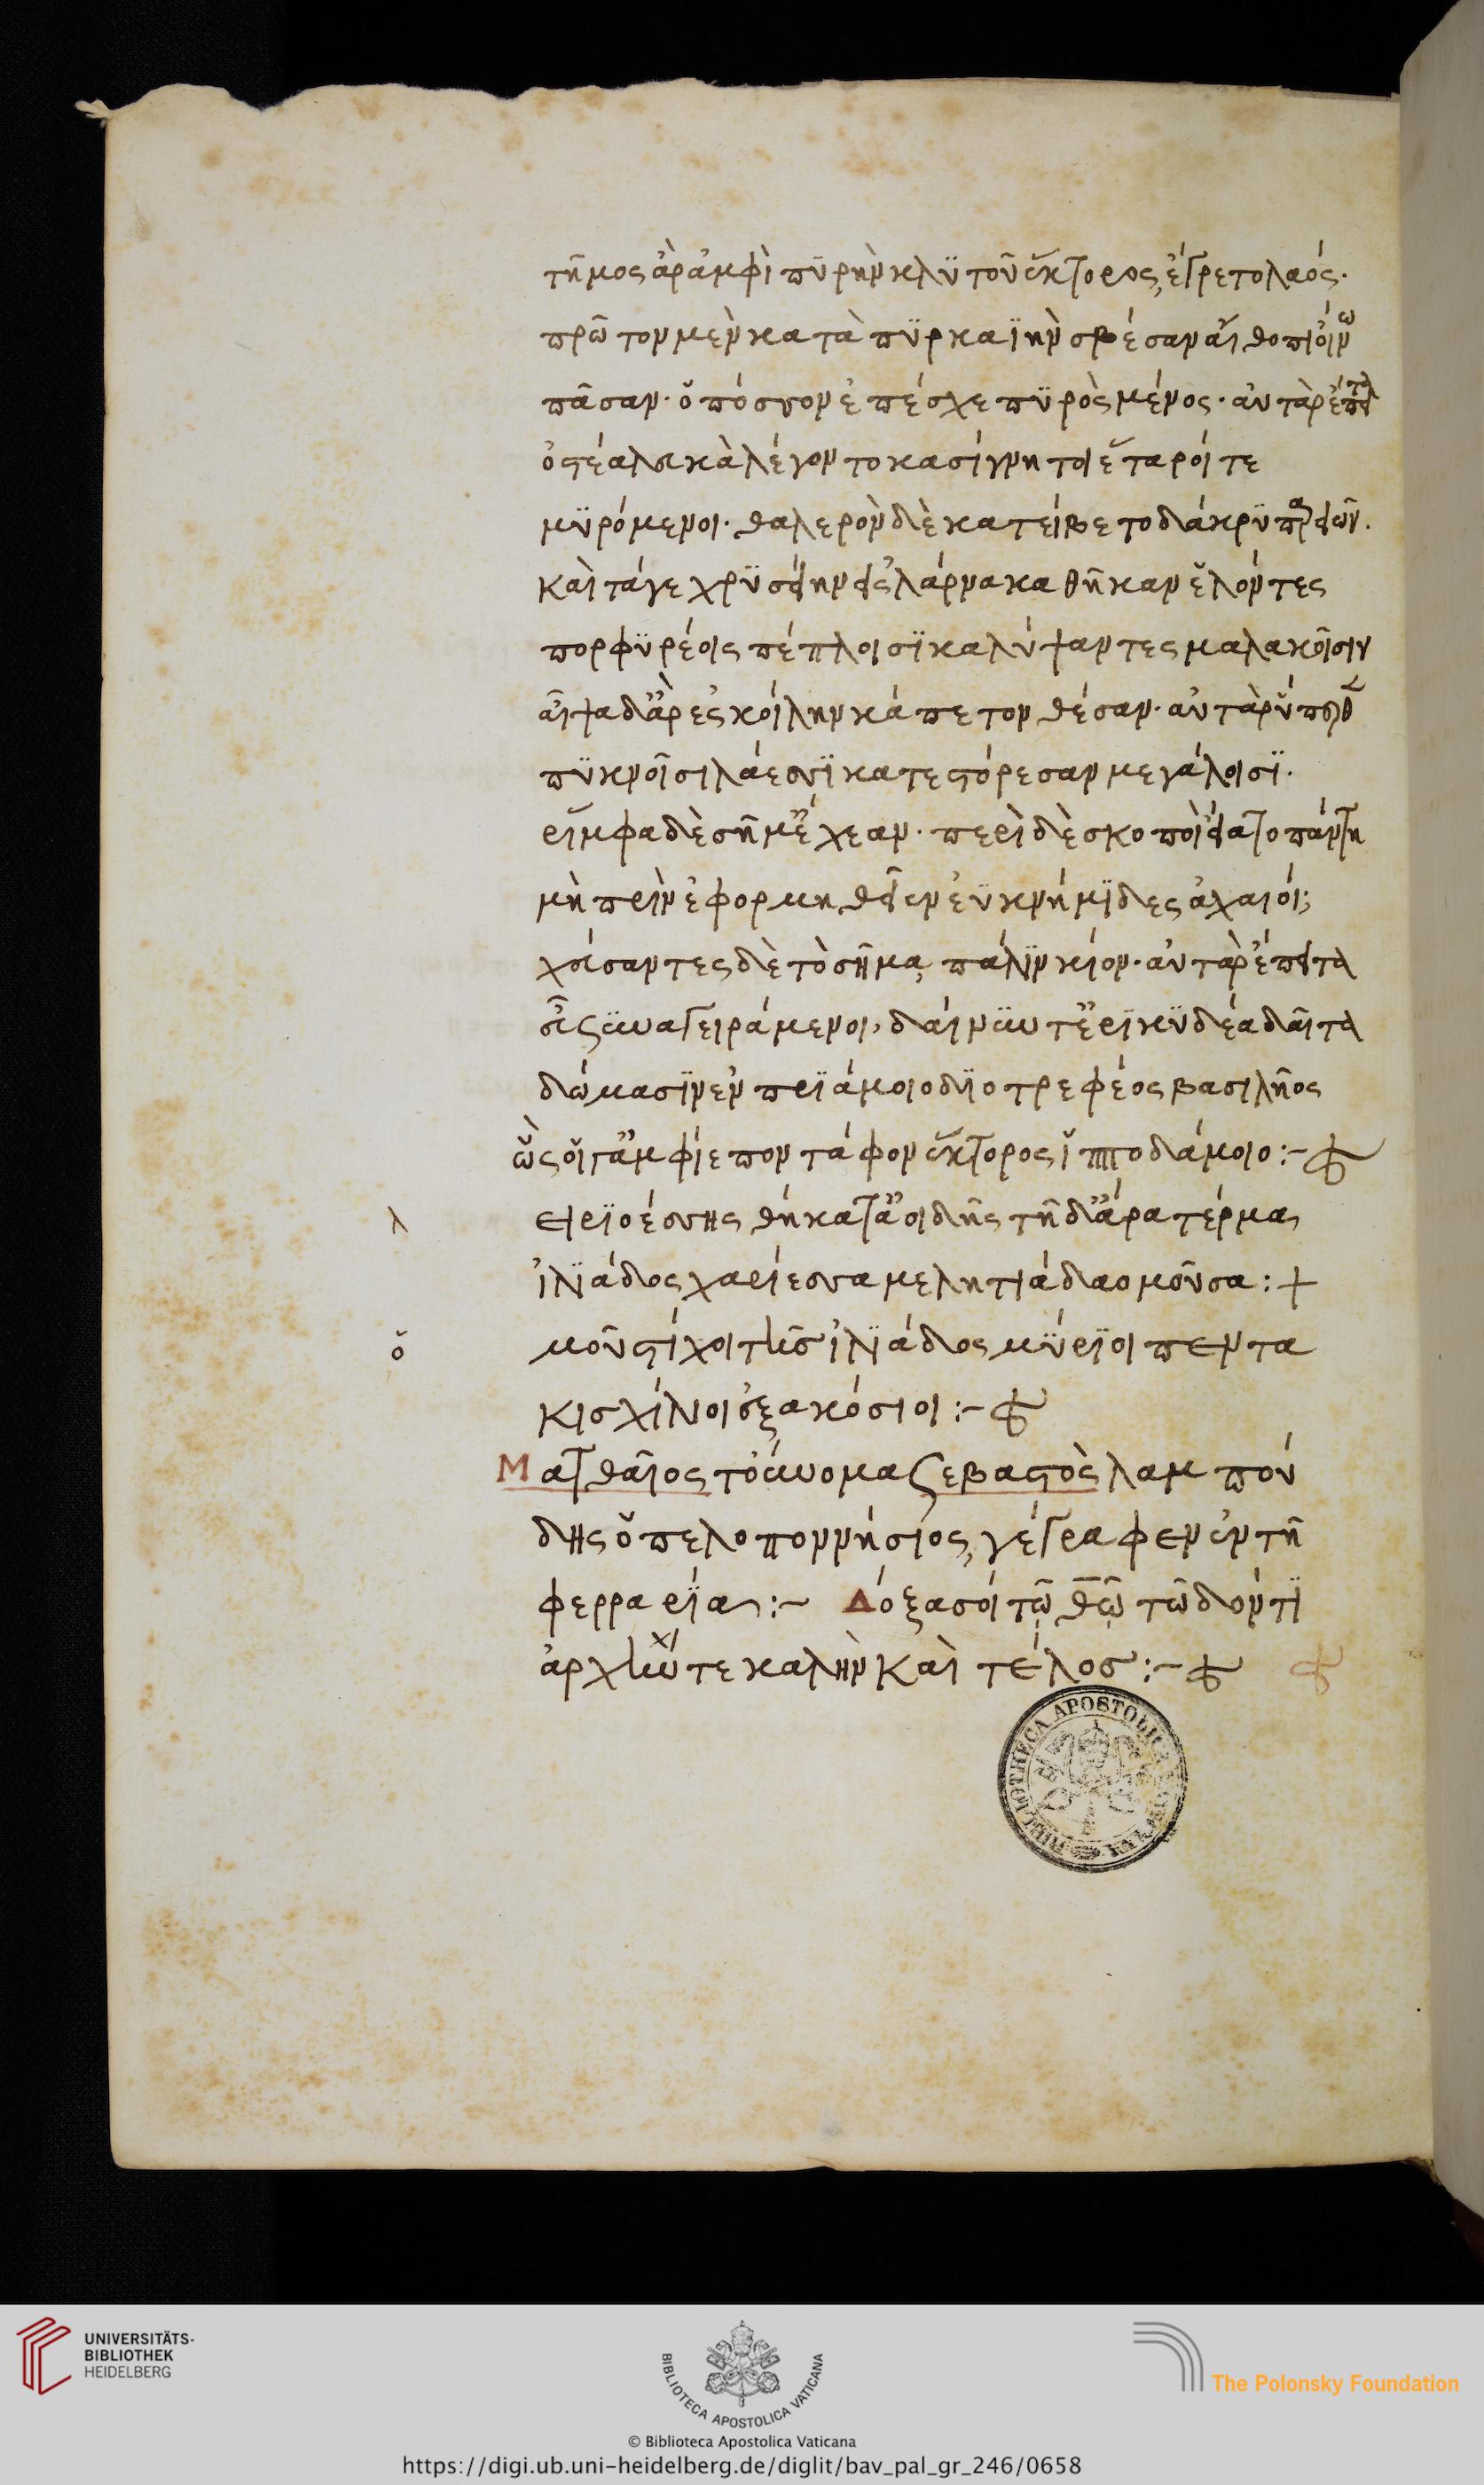 τῆμος ἀρ ἀμφὶ πῢρὴν κλϋτοῦ ἕκτορος, ἔγρετο λαός.
πρῶτον μὲν κατὰ πϋρκαϊὴν σβέσαν αἴθοπι οἴνω
πᾶσαν. ὁπόσσον ἐπέσχε πϋρὸς μένος. αὐτὰρ ἔπειτα
ὀστέα λευκὰ λέγοντο κασίγνητοι ἕταροί τε
μϋρόμενοι. θαλερὸν δὲ κατείβετο δάκρϋ παρειῶν.
καὶ τάγε χρϋσείην εἰς λάρνακα θῆκαν ἑλόντες
πορφϋρέοις πέπλοισϊ καλύψαντες μαλακοῖσιν
αἶψα δ' ἄρ ἐς κοίλην κάπετον θέσαν. αὐτὰρ ὕπερθε
πϋκνοῖσι λάεσσϊ κατεστόρεσαν μεγάλοισϊ.
ῥίμφα δὲ σῆμ' ἔχεαν. περὶ δὲ σκοποὶ εἵατο πάντη
μὴ πρὶν ἐφορμηθεῖεν ἐϋκνήμϊδες ἀχαιοί;
χεύσαντες δὲ τὸ σῆμα πάλϊν κίον. αὐτὰρ ἔπειτα
εὖ συναγειράμενοι, δαίνυντ' ἐρϊκϋδέα δαῖτα
δώμασϊν ἐν πρϊάμοιο δϊοτρεφέος βασιλῆος
ὣς οἵγ' ἀμφίεπον τάφον ἕκτορος ἱπποδάμοιο :-
λ εἰρϊοέσσης θήκατ' ἀοιδῆς τῆδ' ἄρα τέρμα
ἰλϊάδος χαρίεσσα μελητιάδαο μοῦσα : +
ὁμοῦ στίχοι τῆς ἰλϊάδος μύρϊοι πεντα
κισχίλιοι ἑξακόσιοι :-
Ματθαῖος τοὔνομα ζεβαστὸς λαμπού
δης ὁ πελοποννήσιος, γέγραφεν ἐν τῆ
φερραρία :- Δόξα σοί τῷ θῷ τῶ δόντϊ
ἀρχήν τε καλὴν καὶ τέλος :-
BIBLIOTHECA APOSTOLICA VATICANA
UNIVERSITÄTS-
BIBLIOTHEK
HEIDELBERG
BIBLIOTECA APOSTOLICA VATICANA
The Polonsky Foundation
© Biblioteca Apostolica Vaticana
https://digi.ub.uni-heidelberg.de/diglit/bav_pal_gr_246/0658